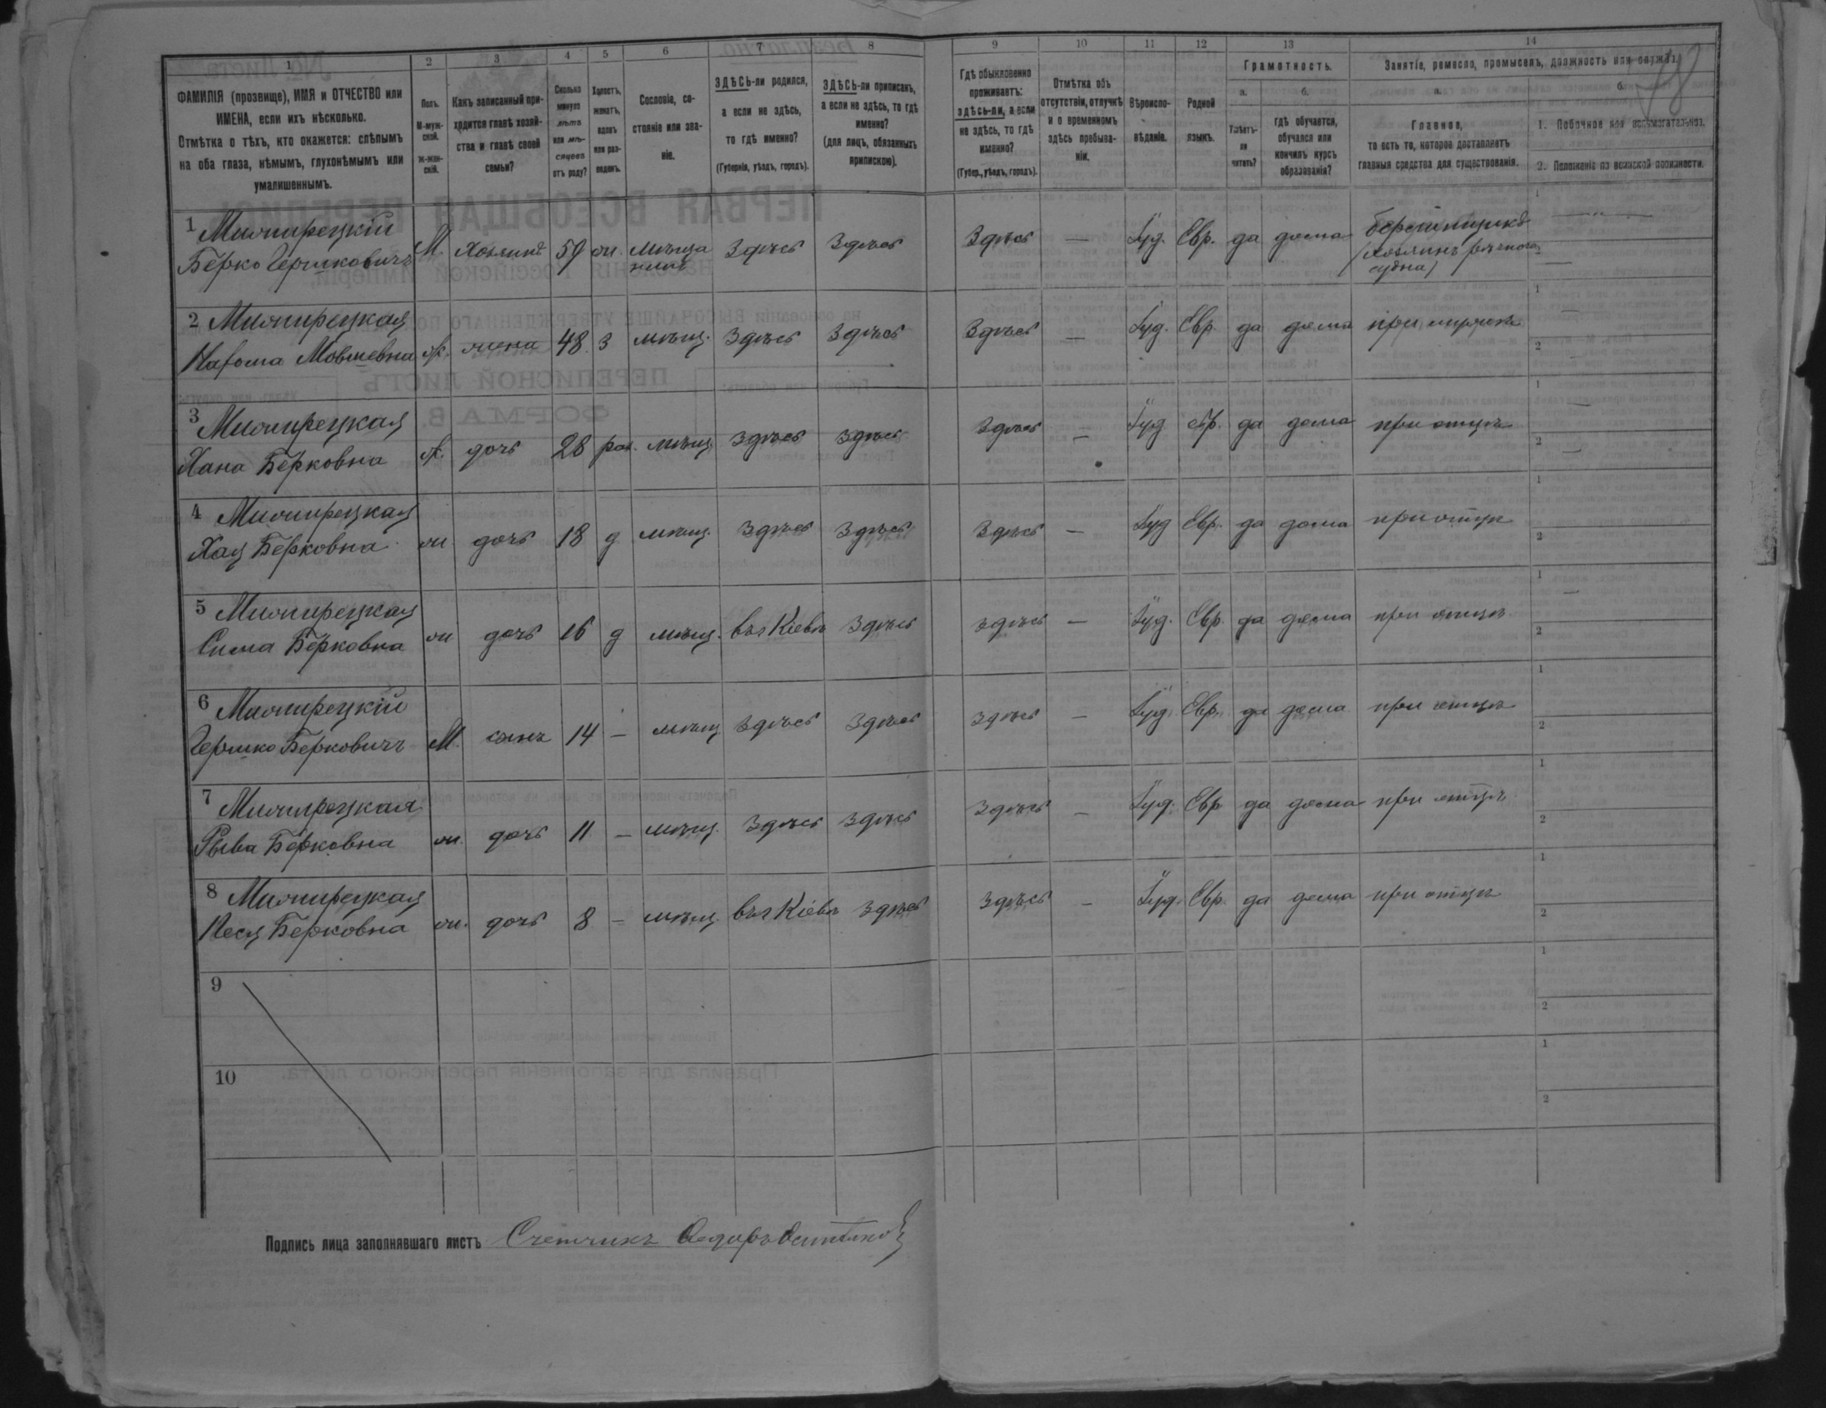 1 2 3 4 5 6 7 8 9 10 11 12 13 14
ФАМИЛІЯ (прозвище), ИМЯ и ОТЧЕСТВО или ИМЕНА, если ихъ нѣсколько.
Отмѣтка о тѣхъ, кто окажется: слѣпымъ на оба глаза, нѣмымъ, глухонѣмымъ или умалишеннымъ.
Полъ.
М-мужской.
Ж-женскій.
Какъ записанный приходится главѣ хозяйства и главѣ своей семьи?
Сколько минуло лѣтъ или мѣсяцевъ отъ роду?
Холостъ, женатъ, вдовъ или разведенъ.
Сословіе, состояніе или званіе.
ЗДѢСЬ-ли родился, а если не здѣсь, то гдѣ именно?
(Губернія, уѣздъ, городъ).
ЗДѢСЬ-ли приписанъ, а если не здѣсь, то гдѣ именно?
(для лицъ, обязанныхъ припискою).
Гдѣ обыкновенно проживаетъ: здѣсь-ли, а если не здѣсь, то гдѣ именно?
(Губер., уѣздъ, городъ).
Отмѣтка объ отсутствіи, отлучкѣ и о временномъ здѣсь пребываніи.
Вѣроисповѣданіе.
Родной языкъ.
Грамотность.
а.
Умѣетъ-ли читать?
б.
гдѣ обучается, обучался или кончилъ курсъ образованія?
Занятіе, ремесло, промыселъ, должность или служба.
а.
Главное,
то есть то, которое доставляетъ главныя средства для существованія.
б.
1. Побочное или вспомогательное.
2. Положеніе по воинской повинности.
1
Берко Гершковичъ М. Хозяинъ 59 ж. мѣщанинъ Здѣсь Здѣсь Здѣсь — Іуд. Евр. да дома
2
Мовшевна ж. жена 48 з мѣщ. Здѣсь Здѣсь Здѣсь — Іуд. Евр. да дома при мужѣ
3
Хана Берковна ж. дочь 28 раз. мѣщ. Здѣсь Здѣсь Здѣсь — Іуд. евр. да дома при отцѣ
4
Хая Берковна ж дочь 18 д мѣщ. Здѣсь Здѣсь Здѣсь — Іуд. Евр. да дома при отцѣ
5
Сима Берковна ж дочь 16 д мѣщ. въ г Кіевѣ Здѣсь Здѣсь — Іуд. Евр. да дома при отцѣ
6
Гершко Берковичъ М. сынъ 14 — мѣщ Здѣсь Здѣсь Здѣсь — Іуд. Евр. да дома при отцѣ
7
Рыва Берковна ж. дочь 11 — мѣщ. Здѣсь Здѣсь Здѣсь — Іуд. Евр да дома при отцѣ
8
Песя Берковна ж. дочь 8 — мѣщ. въ г Кіевѣ Здѣсь Здѣсь — Іуд. Евр. да дома при отцѣ
9
10
Подпись лица заполнявшаго листъ Счетчикъ